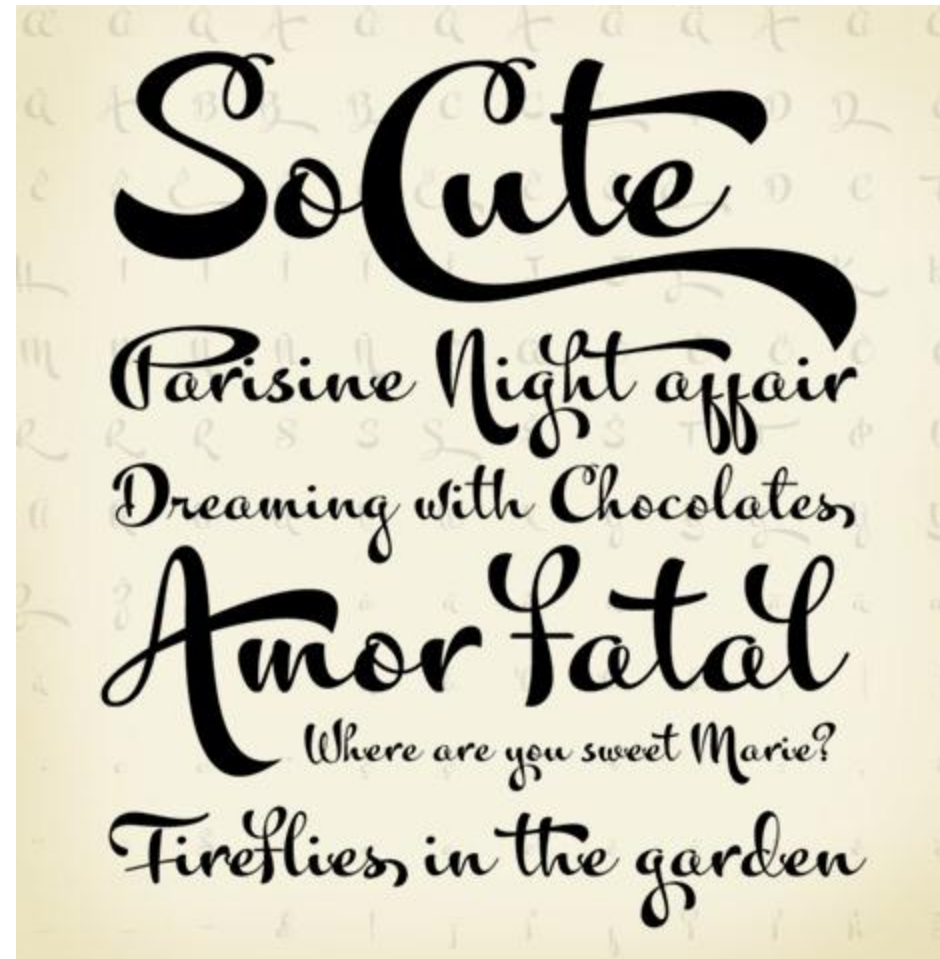 So Cute
Parisine Night affair
Dreaming with Chocolates,
Amor fatal
Where are you sweet Marie?
Fireflies, in the garden